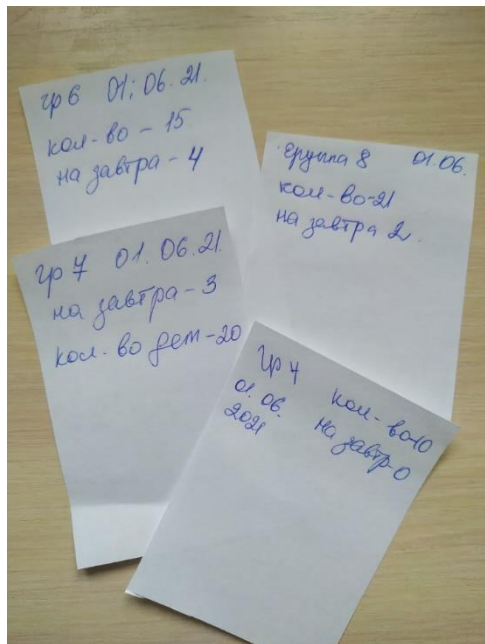 гр 6 01; 06. 21.
кол-во – 15
на завтра – 4
группа 8 01.06.
кол-во-21
на завтра 2.
гр 7 01. 06. 21.
на завтра – 3
кол-во дет – 20
гр 4
01. 06.
2021
кол-во-10
на завтр-0